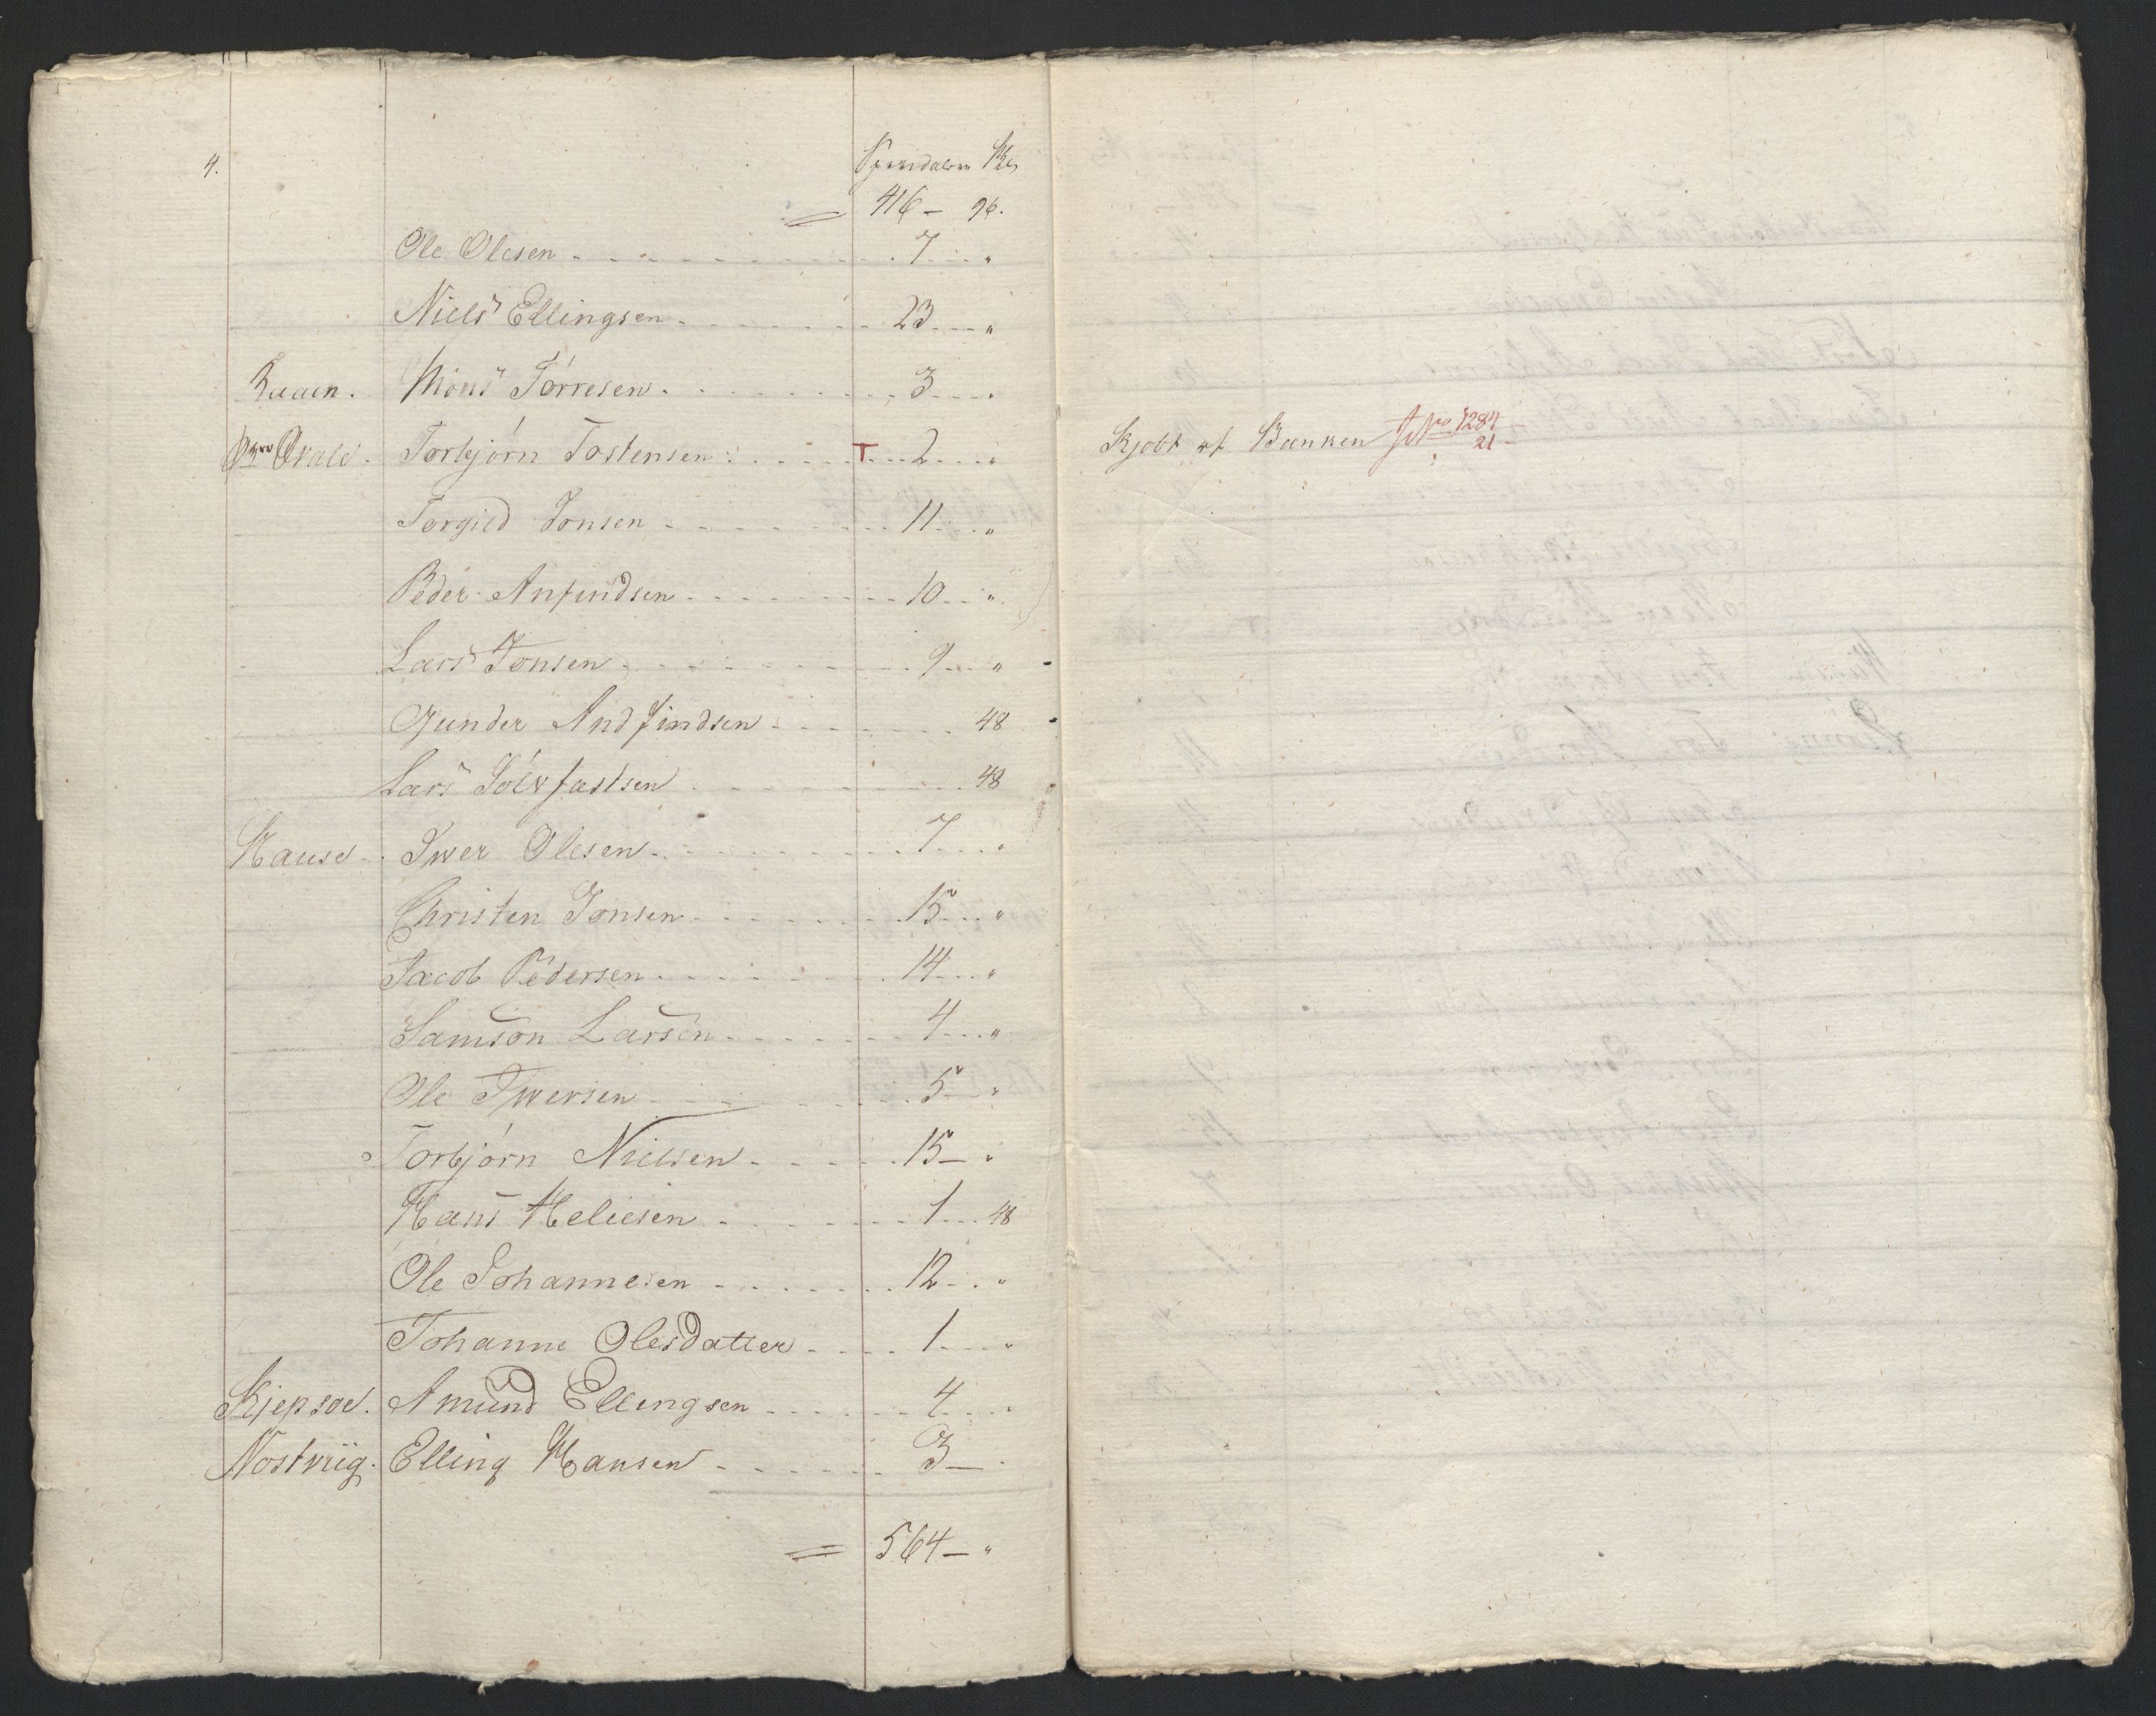 4.
Speciedaler Sk
416 — 96.
Ole Olesen 7 "
Niels Ellingsen 23 "
Raaen. Mons Törresen. 3 "
Qvale. Torbjörn Tostensen T 2 "
Torgild Jonsen 11 "
Peder Anfindsen 10 "
Lars Jonsen 9 "
Gunder Andfindsen 48
Lars Sölvfastsen 48
Hause. Iwer Olesen 7 "
Christen Jonsen 15 "
Jacob Pedersen 14 "
Samson Larsen 4 "
Ole Iwersen 5 "
Torbjörn Nielsen 15 "
Hans Heliesen 1 48
Ole Johannesen 12 "
Johanne Olesdatter 1 "
Kjepsoe. Amund Ellingsen 4 "
Nostviig. Elling Hansen 3 —
= 564 — "
Kjöbt af Banken No 1284
21